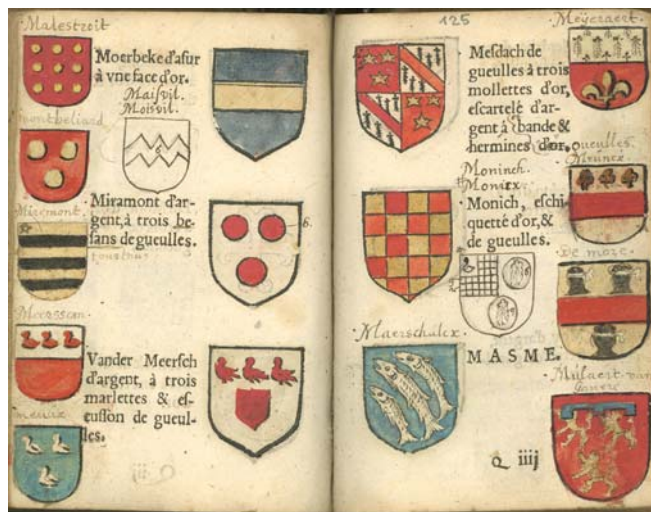 Malestroit
Moerbeke d'asur
à vne face d'or.
Maisvil.
Moisvil.
montbeliard
Miremont.
Miramont d'ar-
gent, à trois be-
sans de gueulles.
6.
Vander Meersch
d'argent, à trois
marlettes & es-
cusson de gueul-
les.
125
Meyeraert.
Mesdach de
gueulles à trois
mollettes d'or,
escartelé d'ar-
gent à bande &
hermines d'or.
gueulles.
Moninch.
Moniex.
Monich, eschi-
quetté d'or, &
de gueulles.
De mare.
Maerschalex.
MASME.
Mulaert van
Q iiij